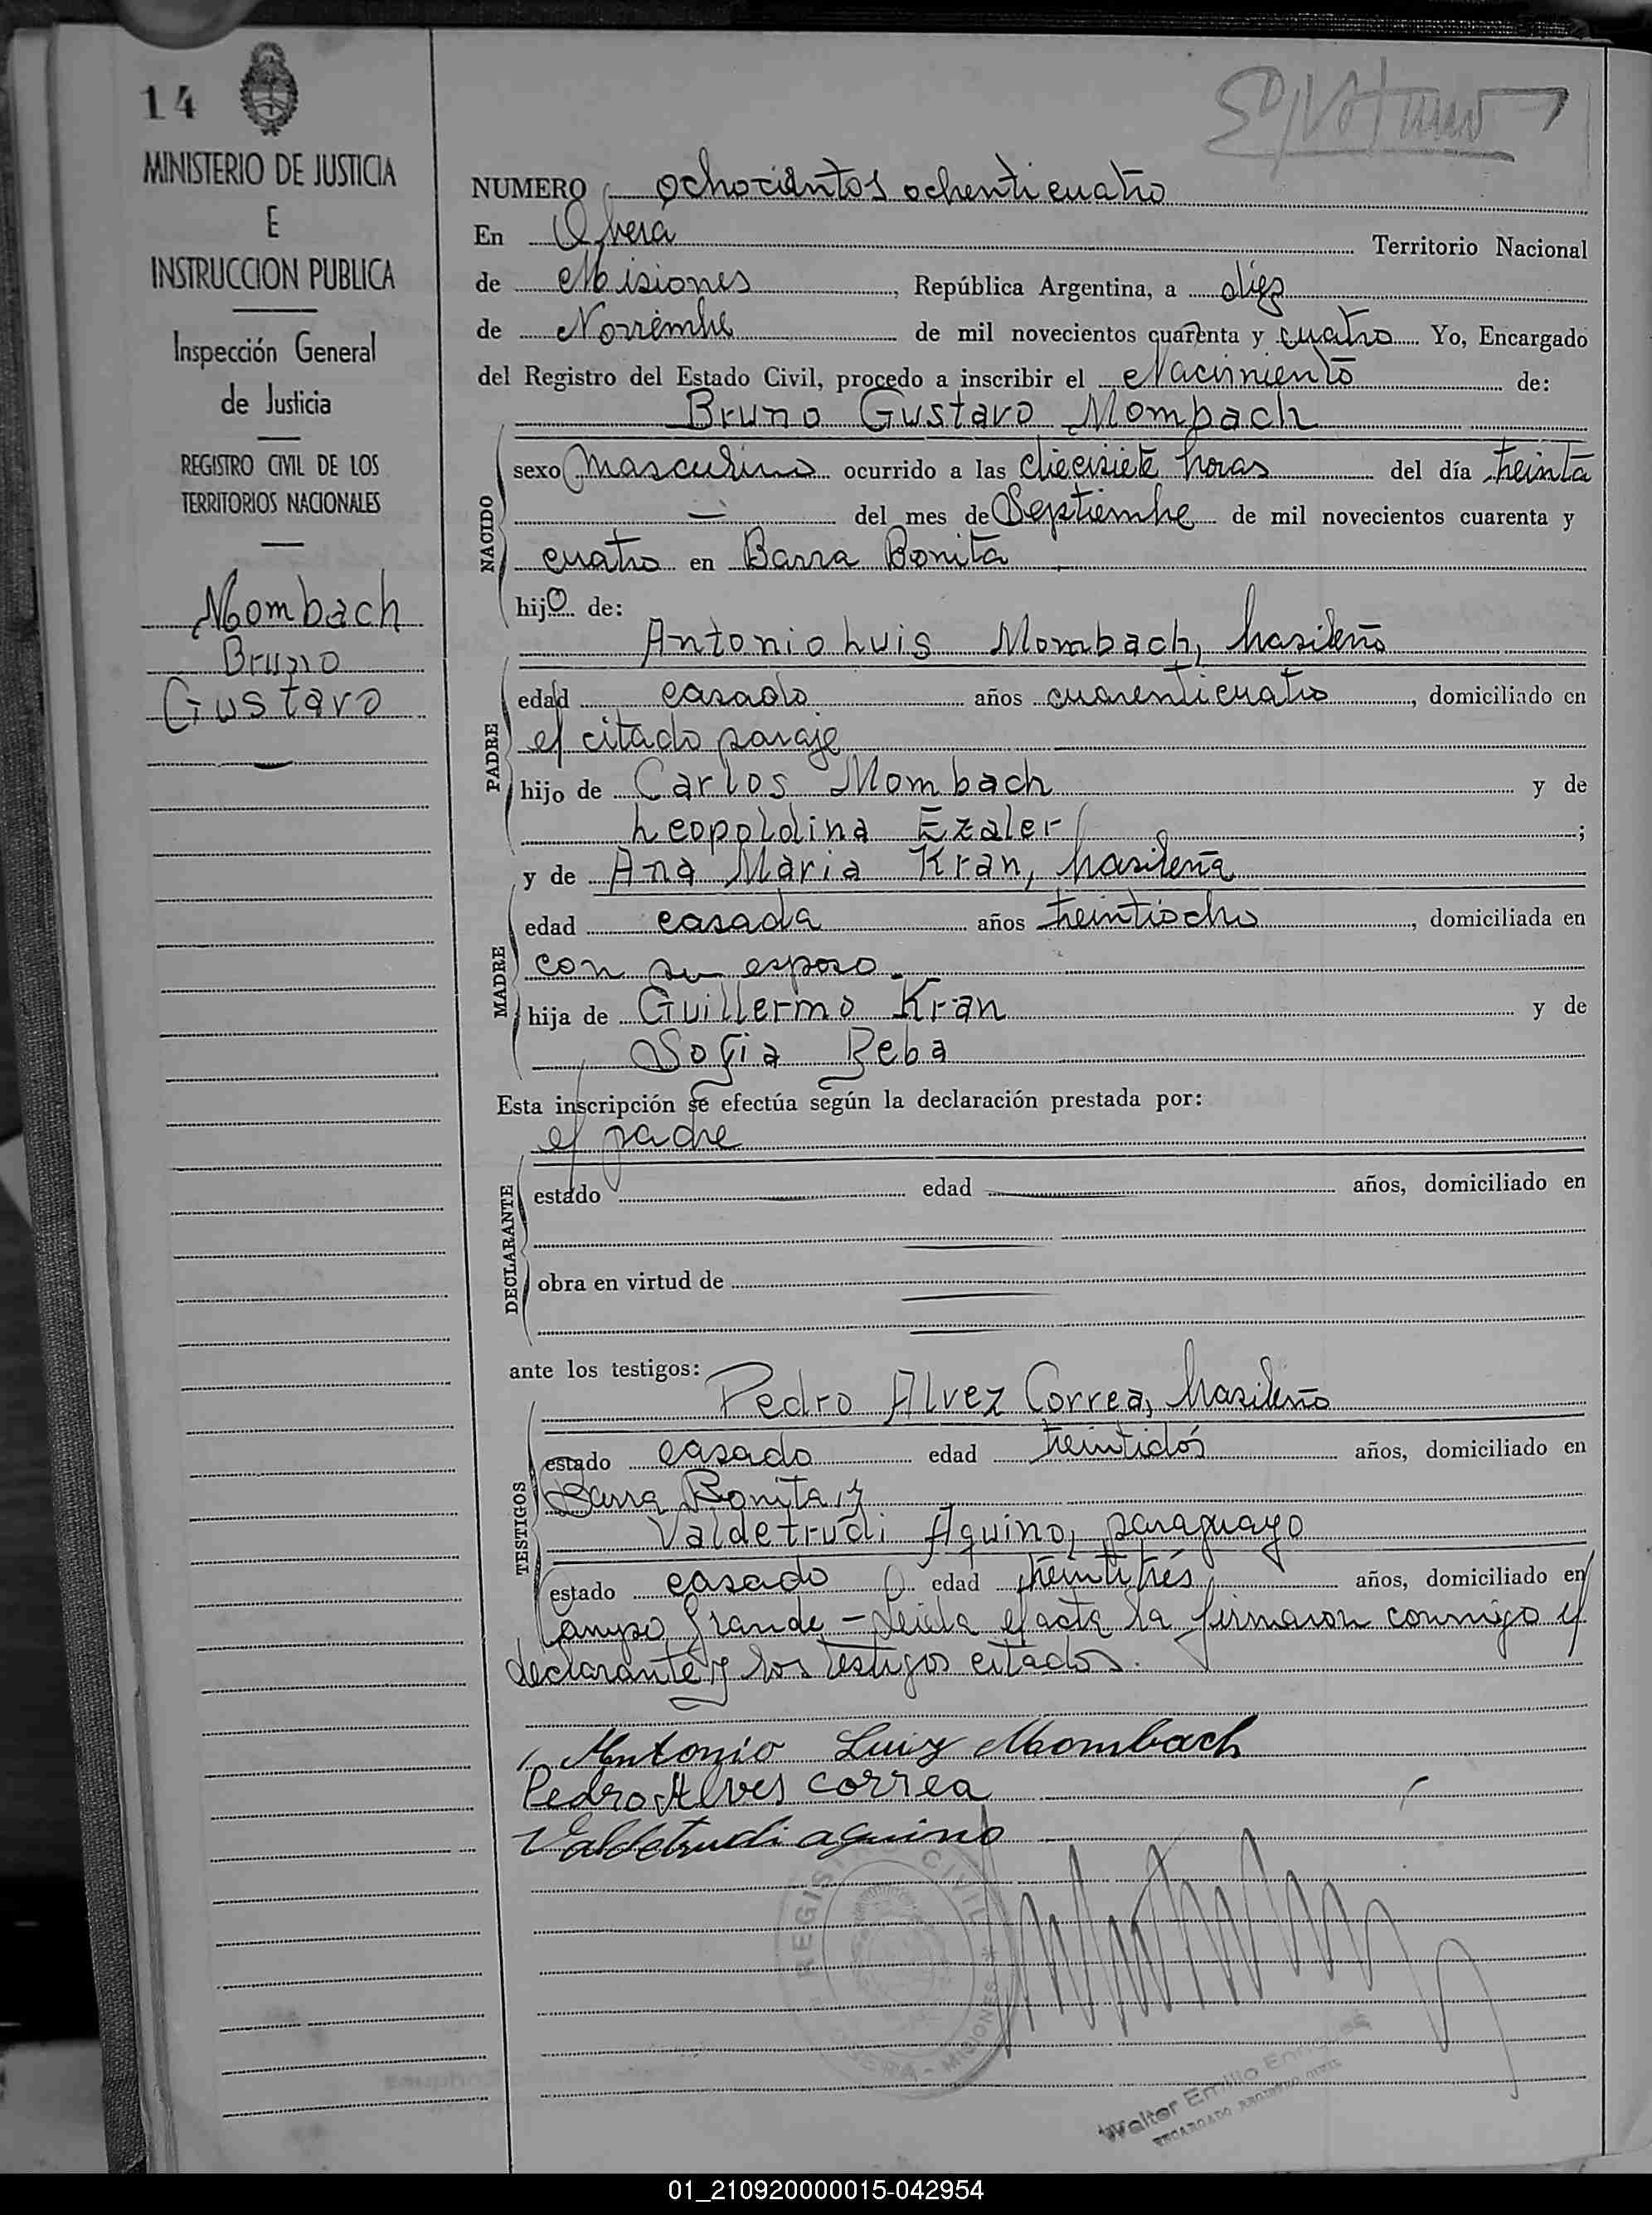 14
MINISTERIO DE JUSTICIA
E
INSTRUCCION PUBLICA
Inspección General
de Justicia
REGISTRO CIVIL DE LOS
TERRITORIOS NACIONALES
Mombach
Bruno
Gustavo
NUMERO ochocientos ochenticuatro
En Oberá Territorio Nacional
de Misiones, República Argentina, a diez
de Noviembre de mil novecientos cuarenta y cuatro Yo, Encargado
del Registro del Estado Civil, procedo a inscribir el Nacimiento de:
Bruno Gustavo Mombach
NACIDO
sexo masculino ocurrido a las diecisiete horas del día treinta
— del mes de Septiembre de mil novecientos cuarenta y
cuatro en Barra Bonita
hijo de:
Antonio Luis Mombach, brasileño
PADRE
edad casado años cuarenticuatro, domiciliado en
el citado paraje
hijo de Carlos Mombach y de
Leopoldina Ezaler;
y de Ana Maria Kran, brasileña
MADRE
edad casada años treintiocho, domiciliada en
con su esposo.
hija de Guillermo Kran y de
Sofia Beba
Esta inscripción se efectúa según la declaración prestada por:
el padre
DECLARANTE
estado edad años, domiciliado en
obra en virtud de
ante los testigos:
Pedro Alvez Correa, brasileño
TESTIGOS
estado casado edad treintidós años, domiciliado en
Barra Bonita, y
Valdetrudi Aquino, paraguayo
estado casado edad treintitrés años, domiciliado en
Campo Grande - Leida el acta la firmaron conmigo el
declarante y los testigos citados.
Antonio Luiz Mombach
Pedro Alves Correa
Valdetrudi aquino
REGISTRO CIVIL
OBERA - MISIONES
Walter Emilio
ENCARGADO REGISTRO CIVIL
01_210920000015-042954